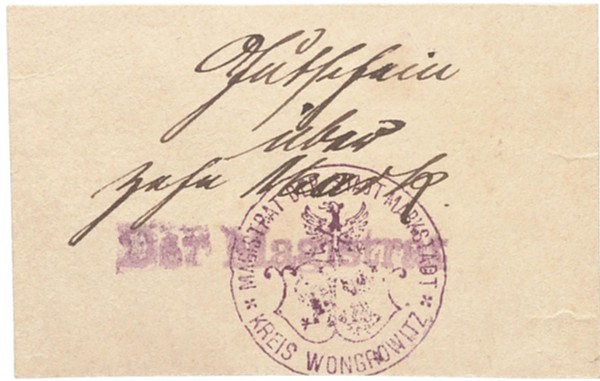 Gutschein
über
zehn Mark.
Der Magistrat
* MAGISTRAT DER STADT MARKSTÄDT *
KREIS WONGROWITZ.